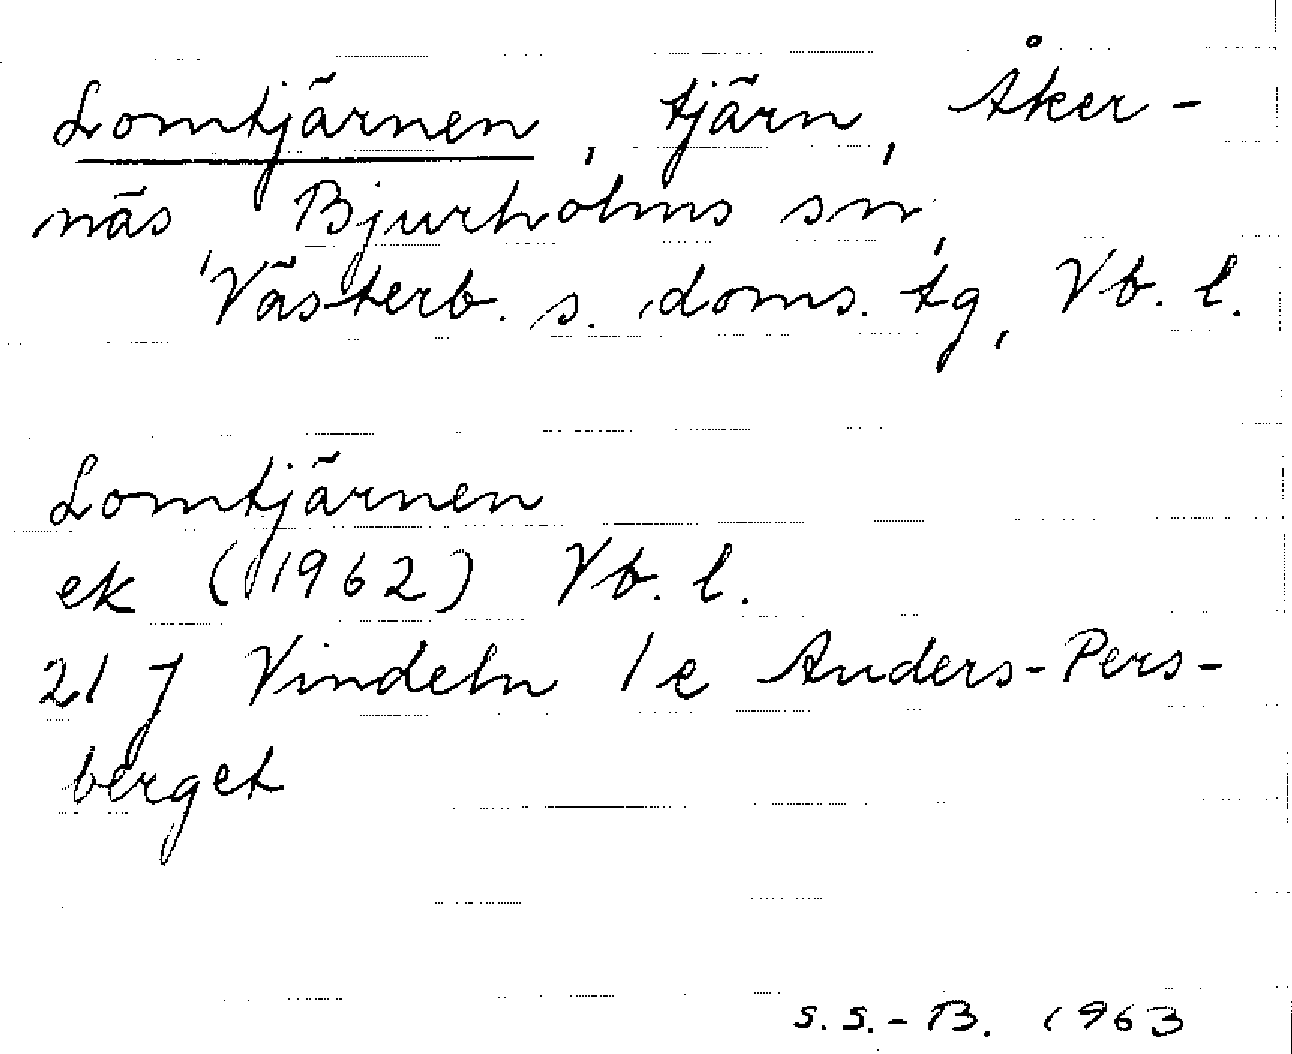 Lomtjärnen, tjärn, Åker-
näs, Bjurholms sn,
Västerb. s. doms. tg, Vb. l.
Lomtjärnen
ek (1962) Vb. l.
21 J Vindeln 1e Anders-Pers-
berget
S.S.-B. 1963